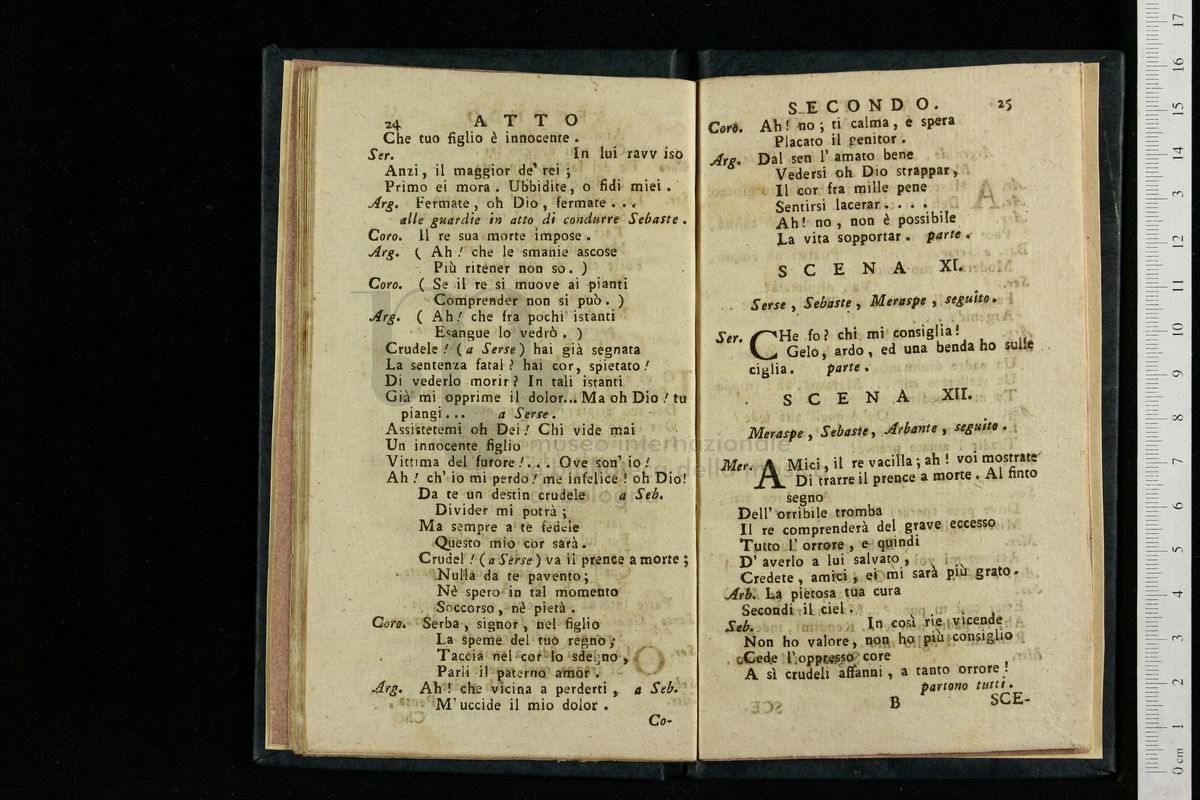 24 A T T O
Che tuo figlio è innocente.
Ser. In lui ravv iso
Anzi, il maggior de' rei;
Primo ei mora. Ubbidite, o fidi miei.
Arg. Fermate, oh Dio, fermate...
alle guardie in atto di condurre Sebaste.
Coro. Il re sua morte impose.
Arg. (Ah! che le smanie ascose
Più ritener non so.)
Coro. (Se il re si muove ai pianti
Comprender non si può.)
Arg. (Ah! che fra pochi istanti
Esangue lo vedrò.)
Crudele! (a Serse) hai già segnata
La sentenza fatal? hai cor, spietato!
Di vederlo morir? In tali istanti
Già mi opprime il dolor... Ma oh Dio! tu
piangi... a Serse.
Assistetemi oh Dei! Chi vide mai
Un innocente figlio
Vittima del furore!... Ove son' io!
Ah! ch' io mi perdo! me infelice! oh Dio!
Da te un destin crudele a Seb.
Divider mi potrà;
Ma sempre a te fedele
Questo mio cor sarà.
Crudel! (a Serse) va il prence a morte;
Nulla da te pavento;
Nè spero in tal momento
Soccorso, nè pietà.
Coro. Serba, signor, nel figlio
La speme del tuo regno;
Taccia nel cor lo sdegno,
Parli il paterno amor.
Arg. Ah! che vicina a perderti, a Seb.
M' uccide il mio dolor.
Co-
SECONDO. 25
Coro. Ah! no; ti calma, e spera
Placato il genitor.
Arg. Dal sen l' amato bene
Vedersi oh Dio strappar,
Il cor fra mille pene
Sentirsi lacerar....
Ah! no, non è possibile
La vita sopportar. parte.
S C E N A XI.
Serse, Sebaste, Meraspe, seguito.
Ser. CHe fo? chi mi consiglia!
Gelo, ardo, ed una benda ho sulle
ciglia. parte.
S C E N A XII.
Meraspe, Sebaste, Arbante, seguito.
Mer. AMici, il re vacilla; ah! voi mostrate
Di trarre il prence a morte. Al finto
segno
Dell' orribile tromba
Il re comprenderà del grave eccesso
Tutto l' orrore, e quindi
D' averlo a lui salvato,
Credete, amici, ei mi sarà più grato.
Arb. La pietosa tua cura
Secondi il ciel.
Seb. In così rie vicende
Non ho valore, non ho più consiglio
Cede l'oppresso core
A sì crudeli affanni, a tanto orrore!
partono tutti.
B SCE-
museo internazionale
della musica
0 cm 1 2 3 4 5 6 7 8 9 10 11 12 13 14 15 16 17